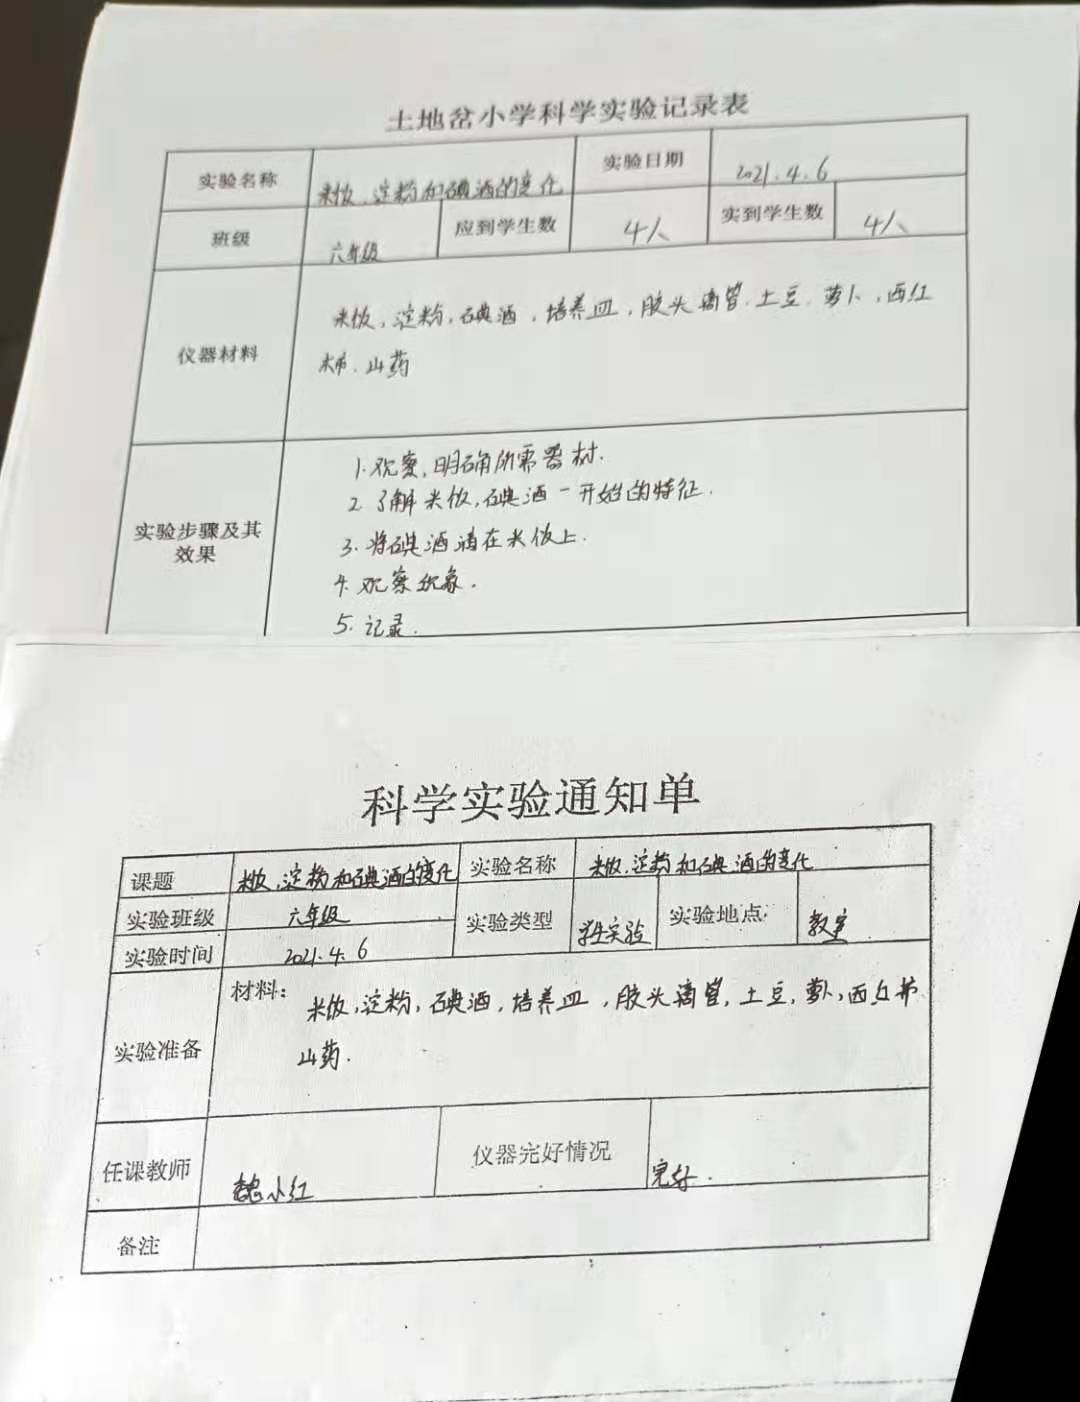 土地岔小学科学实验记录表
实验名称 米饭、淀粉和碘酒的变化 实验日期 2021.4.6
班级 六年级 应到学生数 4人 实到学生数 4人
仪器材料 米饭,淀粉,碘酒,培养皿,胶头滴管.土豆.萝卜,西红
柿.山药
实验步骤及其
效果
1.观察,明确所需器材.
2.了解米饭,碘酒一开始的特征.
3.将碘酒滴在米饭上.
4.观察现象.
5.记录.
科学实验通知单
课题 米饭,淀粉和碘酒的变化 实验名称 米饭,淀粉和碘酒的变化
实验班级 六年级 实验类型 学生实验 实验地点: 教室
实验时间 2021.4.6
实验准备 材料:
米饭,淀粉,碘酒,培养皿,胶头滴管,土豆,萝卜,西红柿
山药.
任课教师 魏小红 仪器完好情况 完好.
备注